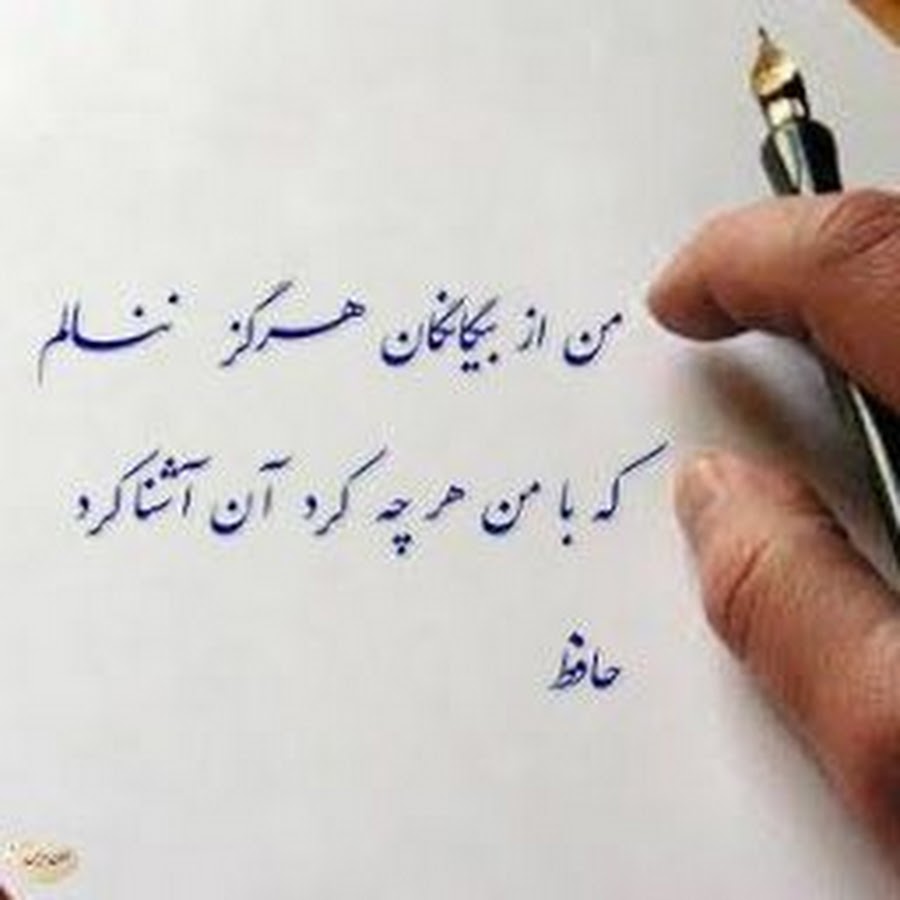 من از بیگانگان هرگز ننالم
که با من هر چه کرد آن آشنا کرد
حافظ